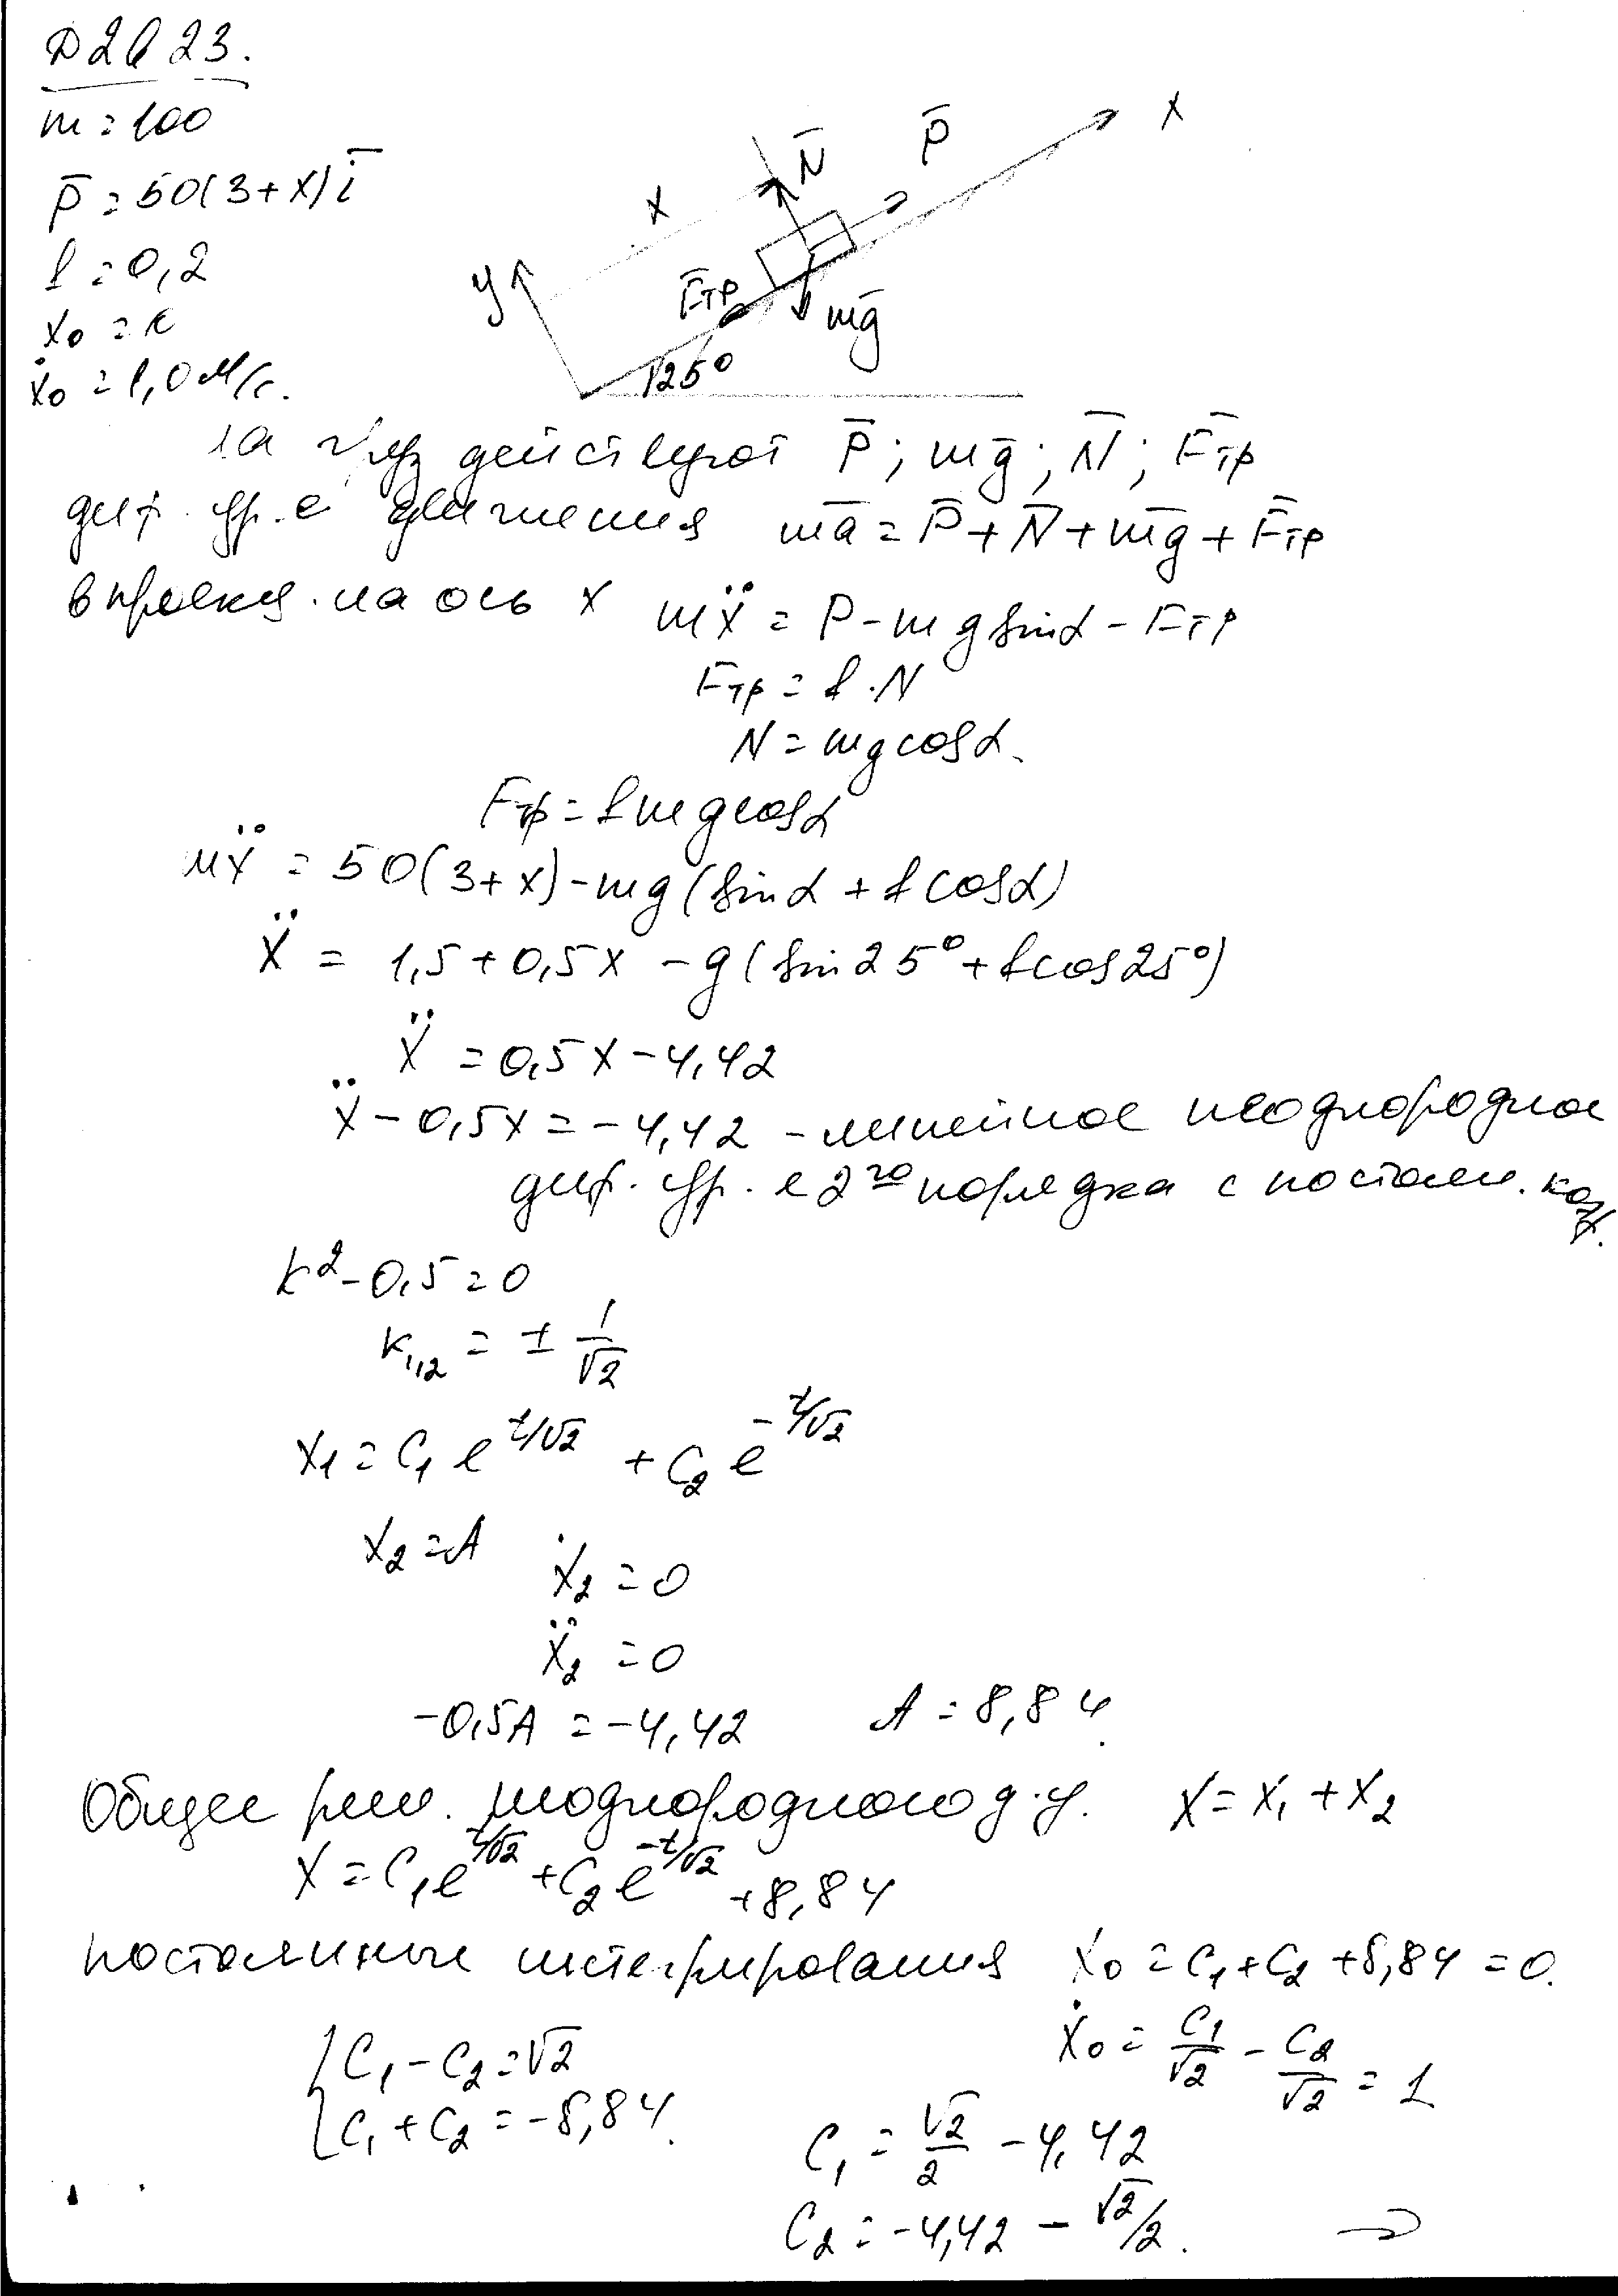 Д2в23.
m = 100
P̄ = 50(3+x)ī
f = 0,2
x₀ = 0
ẋ₀ = 1,0 м/с.
y
x
N̄
P̄
x
F̄тр
mḡ
25°
На груз действуют P̄; mḡ; N̄; F̄тр
диф. ур.е движения mā = P̄ + N̄ + mḡ + F̄тр
в проекц. на ось x mẍ = P - mg sinα - Fтр
Fтр = f·N
N = mg cosα.
Fтр = f mg cosα
mẍ = 50(3+x) - mg(sinα + f cosα)
ẍ = 1,5 + 0,5x - g(sin25° + f cos25°)
ẍ = 0,5x - 4,42
ẍ - 0,5x = -4,42 - линейное неоднородное
диф. ур. е 2го порядка с постоян. коэф.
k² - 0,5 = 0
k₁,₂ = ± 1/√2
x₁ = C₁ e^(t/√2) + C₂ e^(-t/√2)
x₂ = A ẋ₂ = 0
ẍ₂ = 0
-0,5A = -4,42 A = 8,84.
Общее реш. неоднородного д.у. x = x₁ + x₂
x = C₁e^(t/√2) + C₂e^(-t/√2) + 8,84
постоянные интегрирования x₀ = C₁ + C₂ + 8,84 = 0.
ẋ₀ = C₁/√2 - C₂/√2 = 1
{ C₁ - C₂ = √2
C₁ + C₂ = -8,84.
C₁ = √2/2 - 4,42
C₂ = -4,42 - √2/2. →